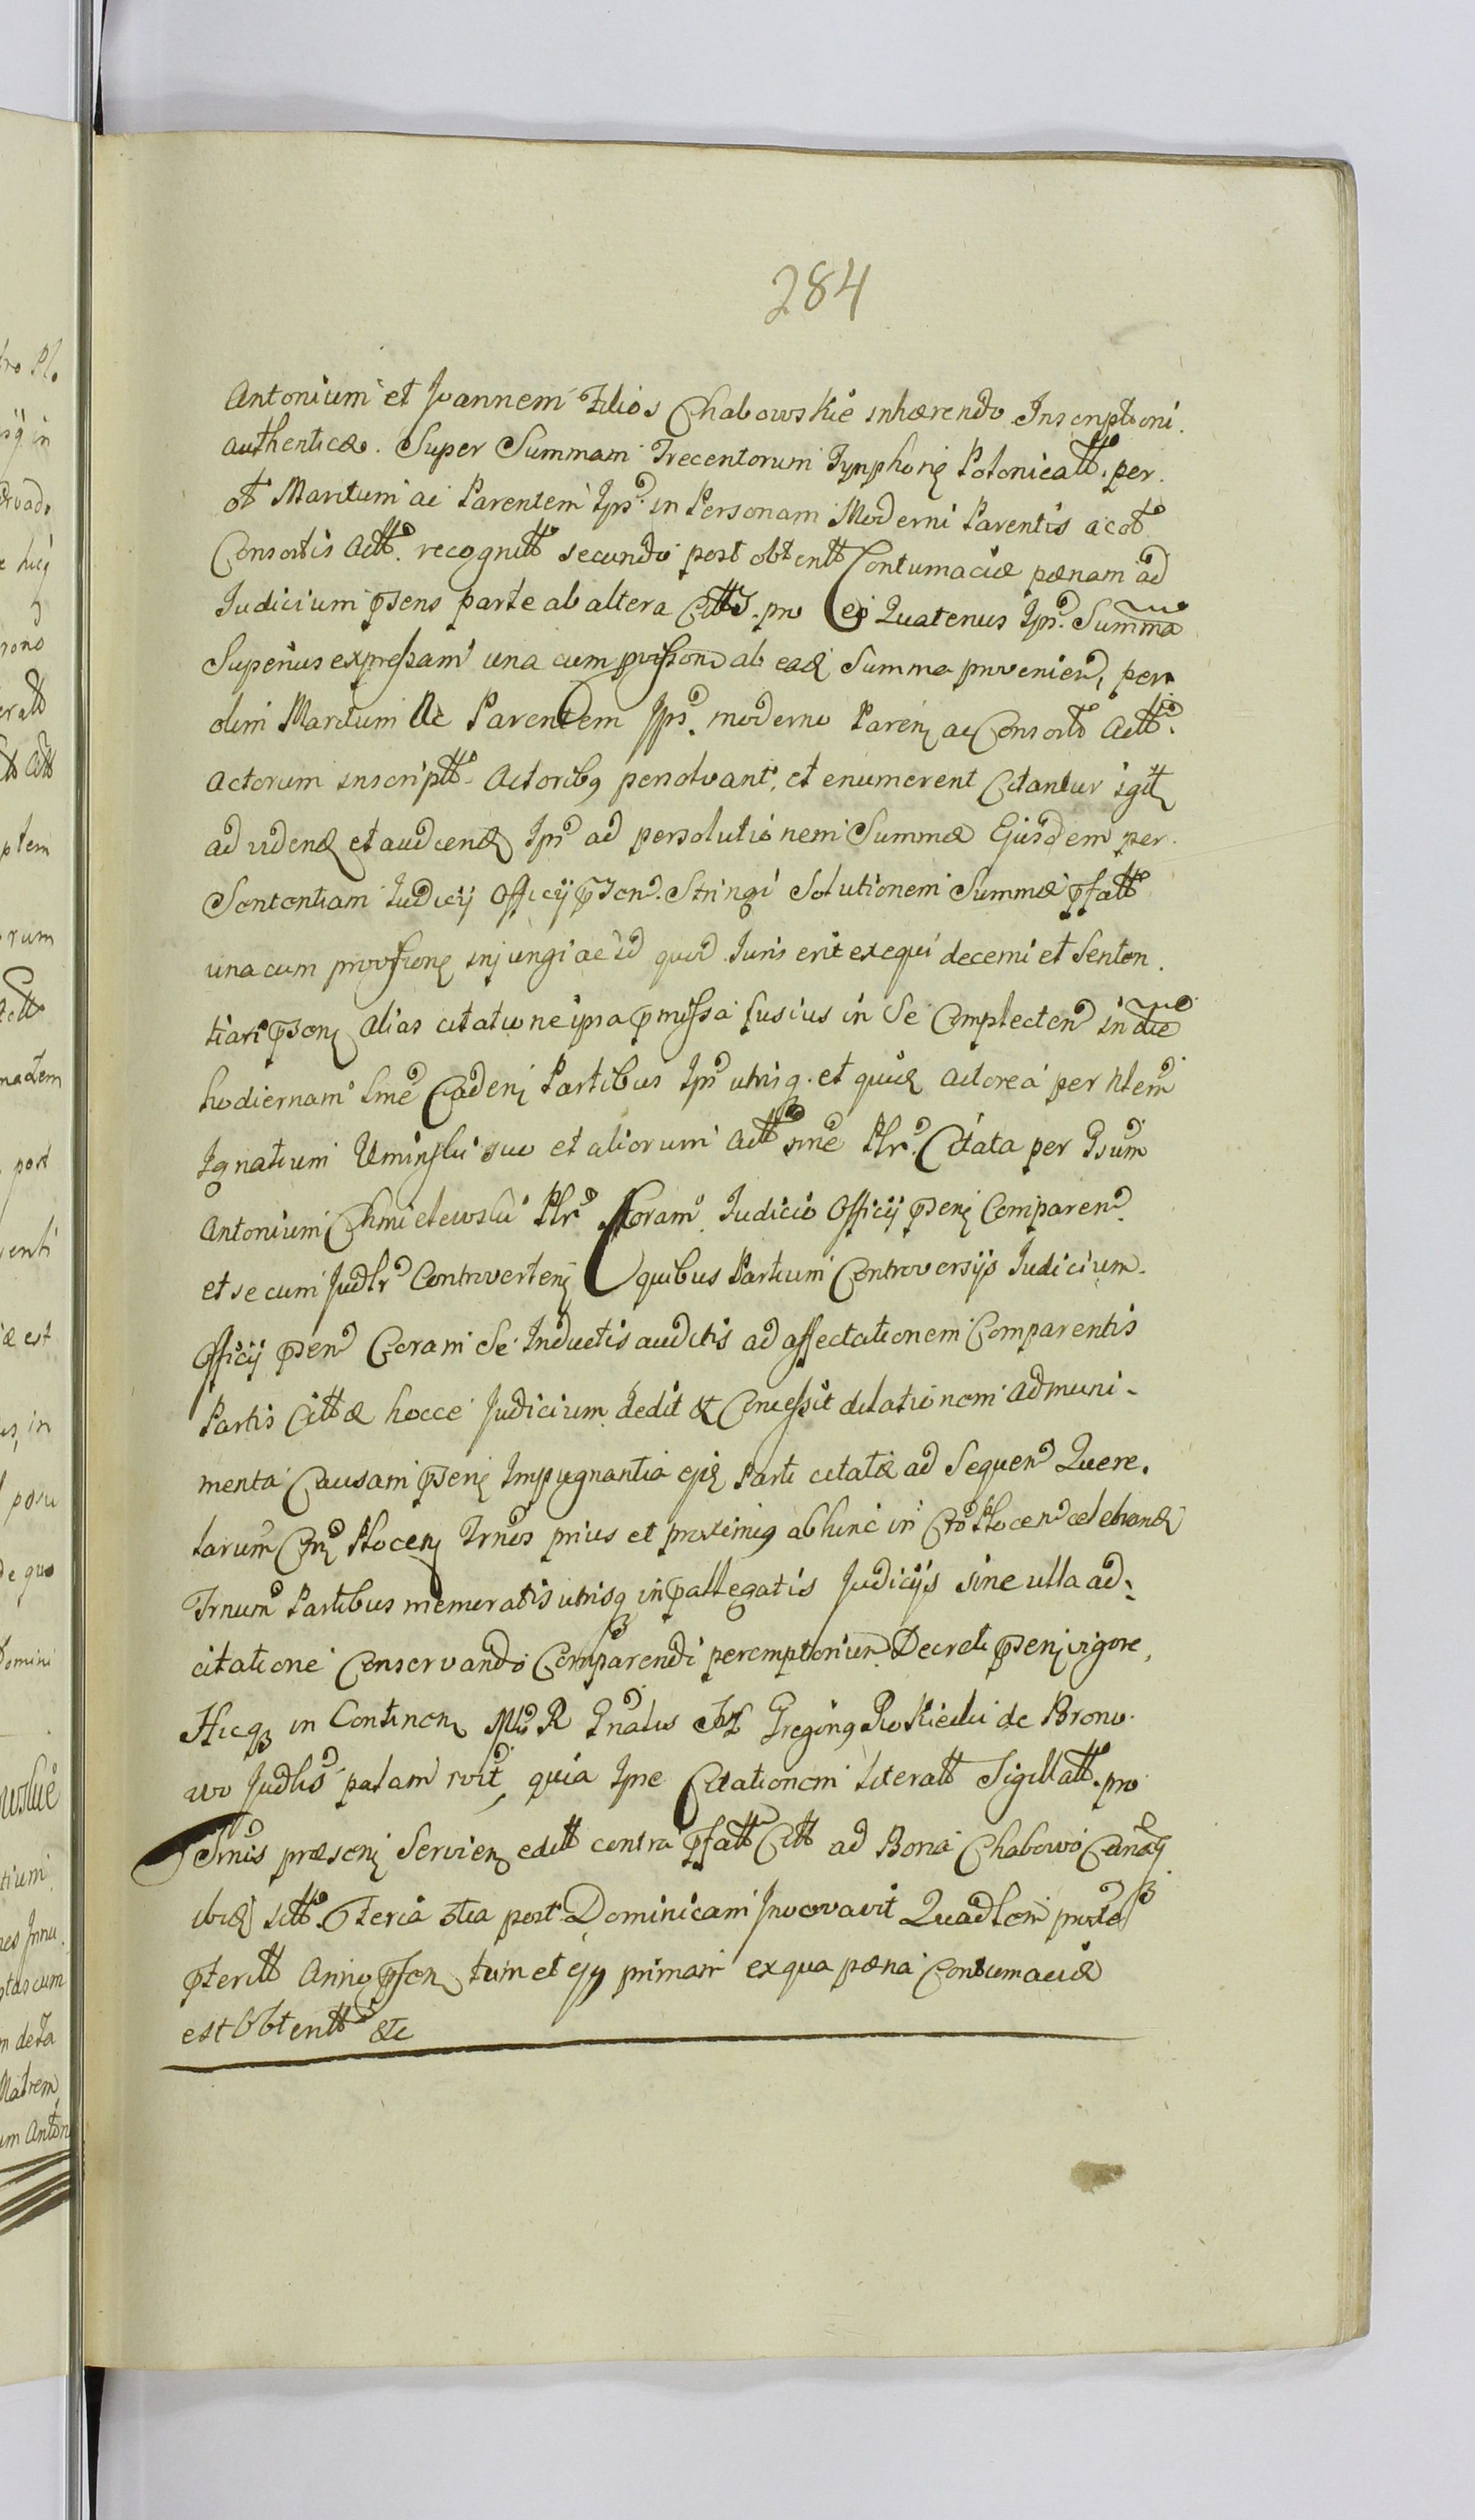 284
Antonium et Joannem Filios Chabowskie inhærendo Inscriptioni
authenticæ. Super Summam Trecentorum Tynphonę Polonicatt. per
ol Maritum ac Parentem Ips. in Personam Moderni Parentis ac ol
Consortis Actt. recognitt secundo post obtentt Contumaciæ pænam ad
Iudicium pñens parte ab altera Citt. pro eo Quatenus Ips. Summa
Superius expressam una cum provisione ab ead Summa provenien, per
olim Maritum Ac Parentem Ips. moderno Paren ac Consorti Actt.
Actorum inscriptt. Actoribq persolvant, et enumerent Citantur igit
ad viden et audien Ips ad persolutionem Summæ Ejusdem per
Sententiam Iudicij Officij pñen. Stringi Solutionem Summæ pfatt
una cum provisione injungi ac id quid Iuris erit exequi decerni et Senten
tiari pñen alias citatione ipsa pmissa fusius in Se Complecten in die
hodiernam Caden Partibus Ips utrisq. et quid Actorea per Nlem
Ignatium Uminski suo et aliorum Actt nine Plr. Citata per Gsum
Antonium Chmielewski Plr Coram Iudicio Officij pñen Comparen
et secum Judlr Controverten quibus Partium Controversijs Iudicium
Officij pñen Coram Se Inductis auditis ad affectationem Comparentis
Partis Cittæ hocce Judicium dedit & Concessit dilationem ad muni-
menta Causam pñen Impugnantia ejq Parti citatæ ad Sequen Quere.
larum Plocen Trnos prius et proximiq abhinc in Plocen celebran
Trnum Partibus memoratis utrisq in pallegatis Judicijs sine ulla ad-
citatione Conservando Comparendi peremptorium Decreti pñen vigore,
Hicq in Continen R Gnalis Gregoriq Rokicki de Brono
wo Judlis palam rvit, quia Ipse Citationem literatt Sigillatt. pro
Trnis præsen Servien editt contra pfatt Citt ad Bona Chabowo
ibiq sitt. Feria 3tia post Dominicam Invocavit Quadlem
pteritt Anno pñen tum et ejq primam ex qua pæna Contumaciæ
est Obtentt &c